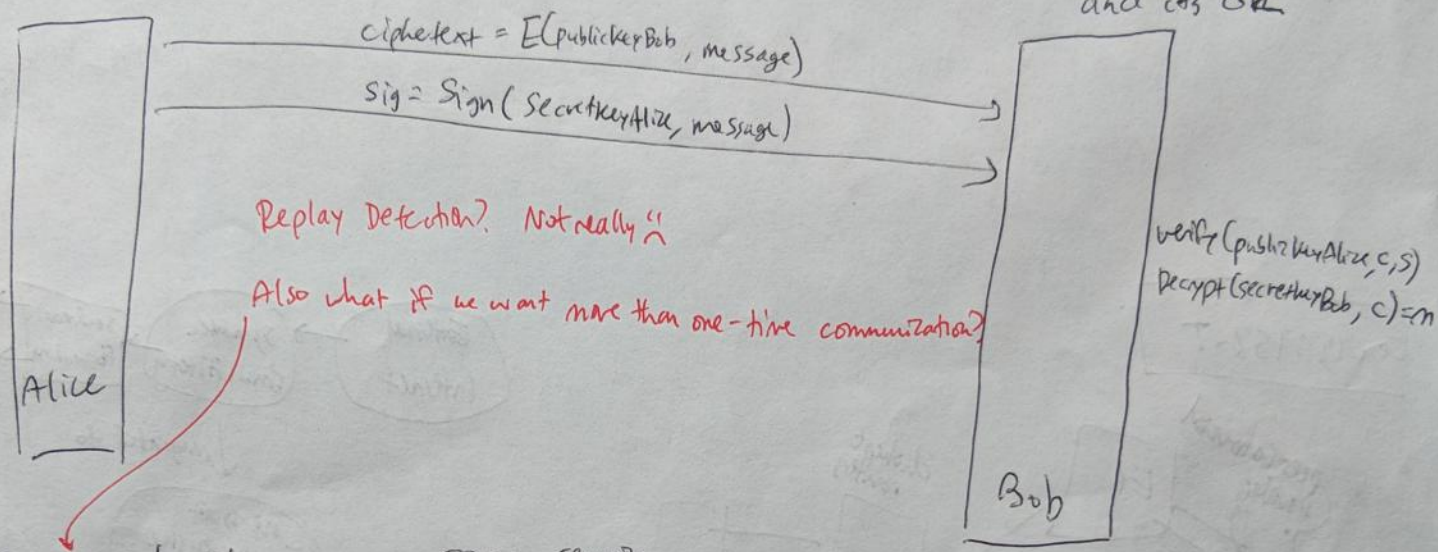 and its OK
ciphertext = E(publickeyBob, message)
Sig = Sign(SecretkeyAlice, message)
Replay Detection? Not really :(
Also what if we want more than one-time communization?
verify(publickeyAlice, c, s)
Decrypt(secretkeyBob, c)=m
Alice
Bob